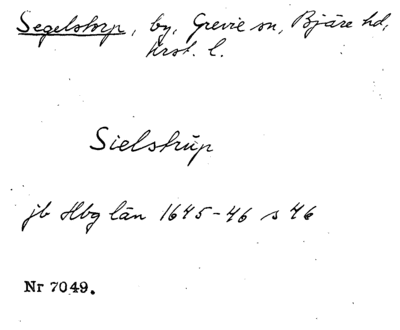 Segelstorp, by, Grevie sn, Bjäre hd,
Krst. l.
Sielstrŭp
jb Hbg län 1645-46 s 46
Nr 7049.